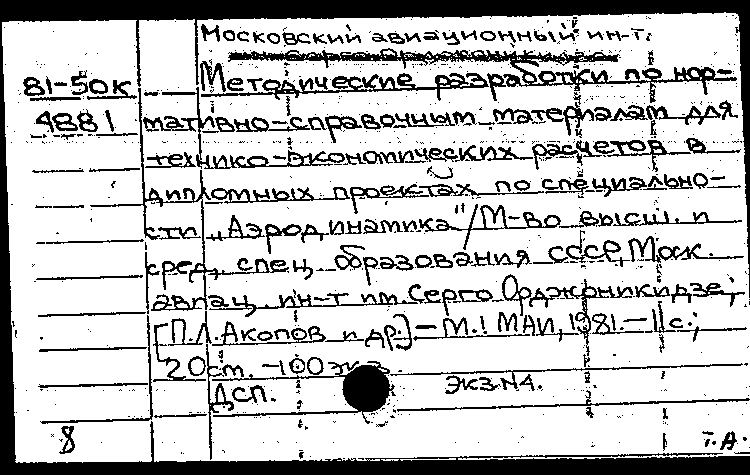 Московский авиационный ин-т.
81-50к
Методические разработки по нор-
4881
мативно-справочным материалам для
технико-экономических расчетов в
дипломных проектах по специально-
сти "Аэродинамика"/М-во высш. и
сред. спец. образования СССР, Моск.
авиац. ин-т им. Серго Орджоникидзе;
[П.Л. Акопов и др.] - М.: МАИ, 1981. - 11 с.;
20см. - 100 экз.
ДСП.
экз. N4.
8
Т.А.